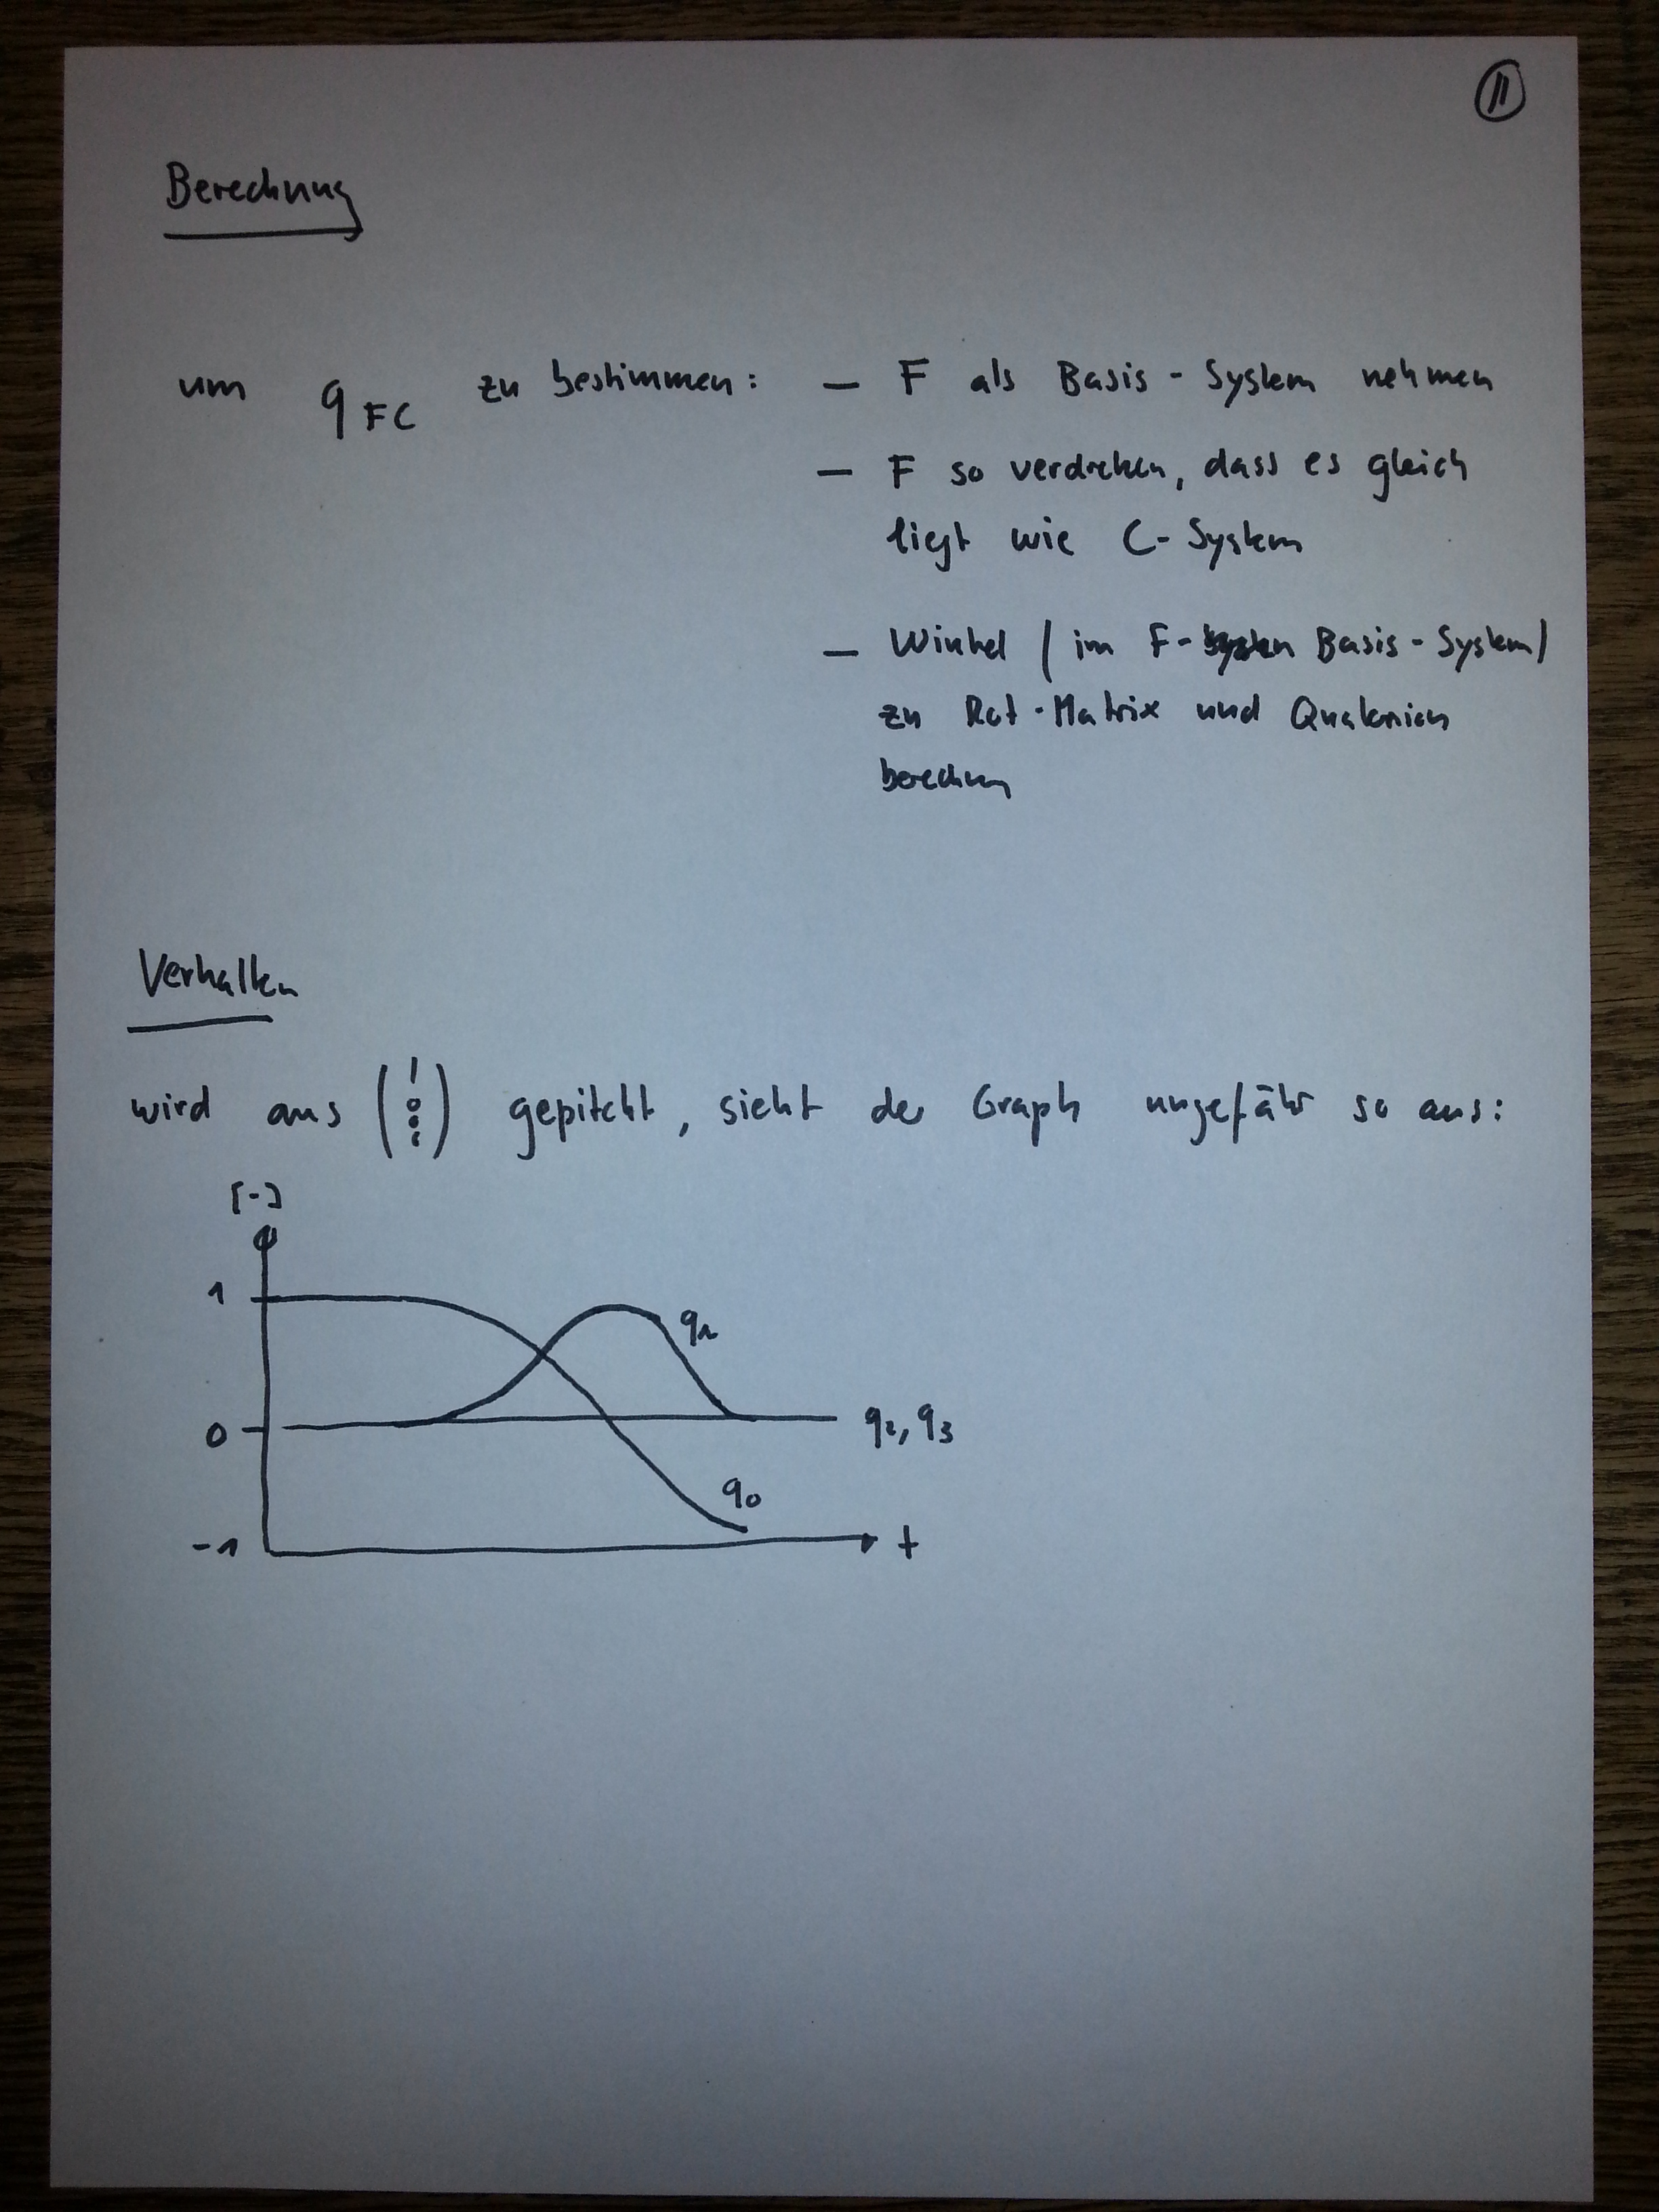 11
Berechnung
um q FC zu bestimmen: – F als Basis-System nehmen
– F so verdrehen, dass es gleich
liegt wie C-System
– Winkel (im F- Basis-System)
zu Rot-Matrix und Quaternion
berechnen
Verhalten
wird aus (1 0 0 0) gepitcht, sieht der Graph ungefähr so aus:
[-]
1
q1
0
q2, q3
q0
-1
t